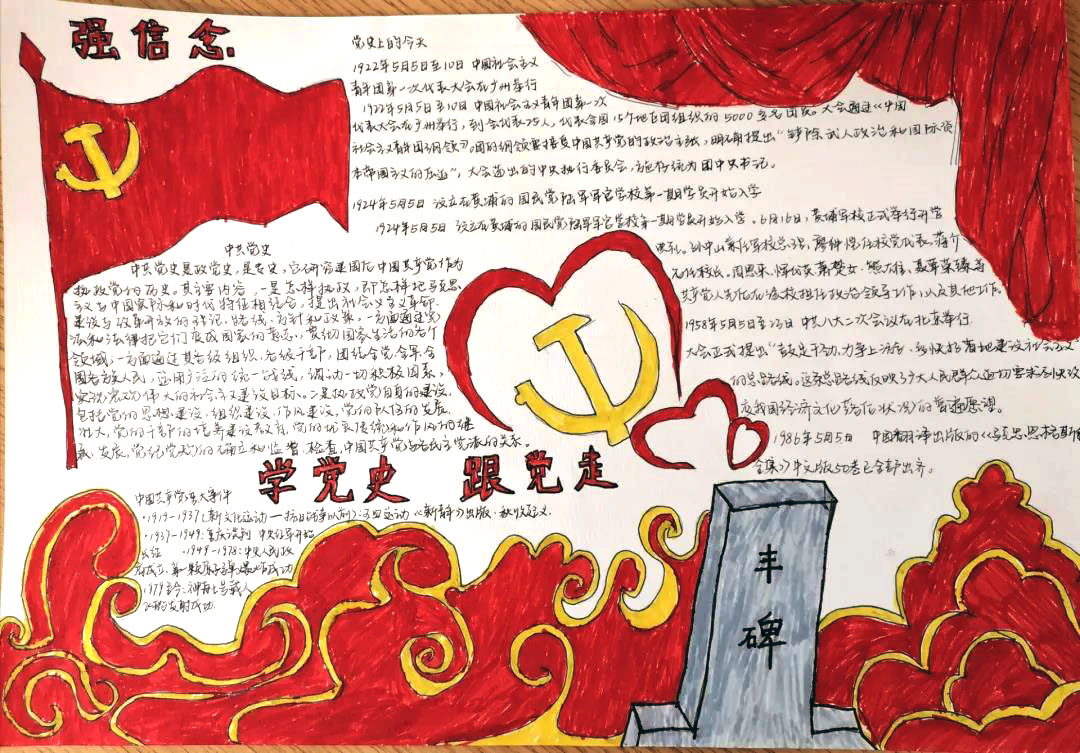 强信念
党史上的今天
1922年5月5日至10日 中国社会主义
青年团第一次代表大会在广州举行
1922年5月5日至10日 中国社会主义青年团第一次
代表大会在广州举行,到会代表25人,代表全国15个地区团组织的5000多名团员。大会通过《中国
社会主义青年团纲领》。团的纲领需接受中国共产党的政治主张,明确提出"铲除武人政治和国际资
本帝国主义的压迫",大会选出的中央执行委员会,施存统为团中央书记。
1924年5月5日 设立在黄埔的国民党陆军军官学校第一期学员开始入学
1924年5月5日 设立在黄埔的国民党陆军军官学校第一期学员开始入学。6月16日,黄埔军校正式举行开学
典礼。孙中山兼任军校总理,廖仲恺任校党代表,蒋介
石任校长。周恩来、恽代英、萧楚女、熊雄、聂荣臻等
共产党人先后在该校担任政治领导工作,以及其他工作。
1958年5月5日至23日 中共八大二次会议在北京举行
大会正式提出"鼓足干劲、力争上游、多快好省地建设社会主义"
的总路线。这条总路线反映了广大人民群众迫切要求尽快改
变我国经济文化落后状况的普遍愿望。
1986年5月5日 中国翻译出版的《马克思恩格斯
全集》中文版50卷已全部出齐。
中共党史
中共党史是政党史,是专史,它研究建国后中国共产党作为
执政党的历史。其主要内容,一是怎样执政,即怎样把马克思
主义与中国实际和时代特征相结合,提出社会主义革命、
建设与改革开放的理论、路线、方针和政策,一方面通过宪
法和法律把它们变成国家的意志,贯彻国家生活的各个
领域,一方面通过其各级组织、各级干部,团结全党、全军、全
国各族人民,巩固广泛的统一战线,调动一切积极因素,
实现宏观伟大的社会主义建设目标。二是执政党自身的建设,
包括党的思想建设、组织建设、作风建设,党的队伍的发展
壮大,党的干部的培养建设教育,党的优良传统和作风的继
承、发展,党纪党规的确立和监督、检查,中国共产党与各民主党派的关系。
学党史 跟党走
中国共产党重大事件
·1919-1937(新文化运动—抗日战争以前):五四运动《新青年》出版·秋收起义.
·1937-1949:重庆谈判 中央红军开始
长征 ·1949-1978:中央人民政
府成立,第一颗原子弹爆炸成功
·1979至今:神舟七号载人
飞船发射成功.
丰碑